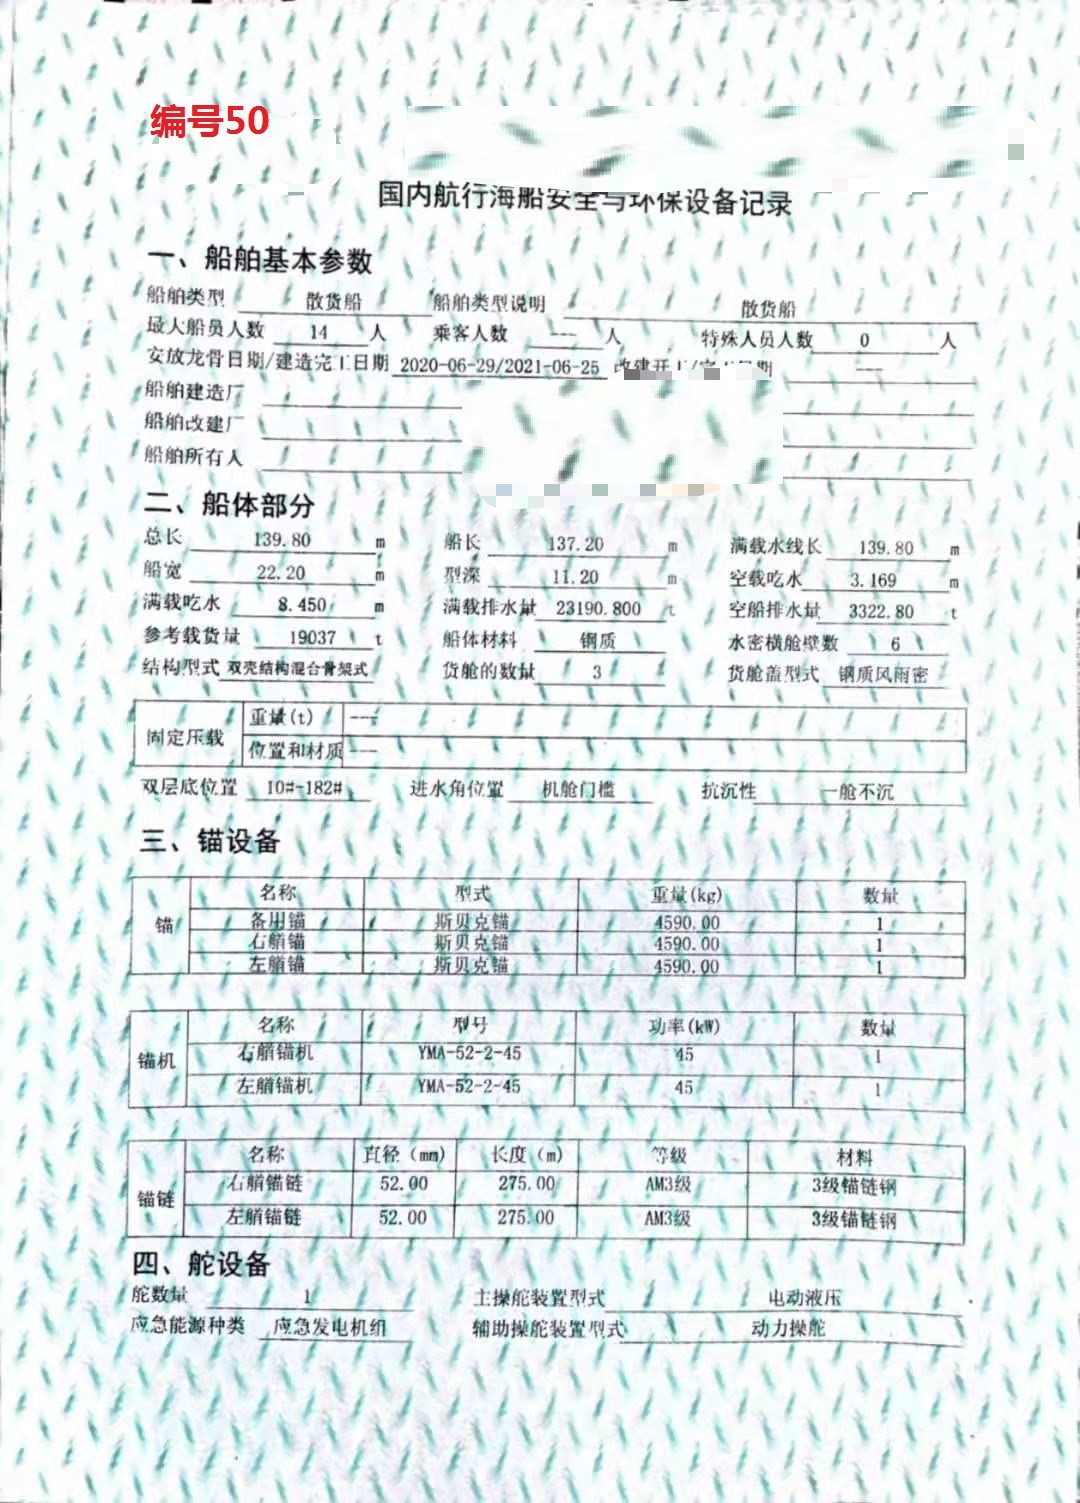 编号50
国内航行海船安全与环保设备记录
一、船舶基本参数
船舶类型 散货船 船舶类型说明 散货船
最大船员人数 14 人 乘客人数 --- 人 特殊人员人数 0 人
安放龙骨日期/建造完工日期 2020-06-29/2021-06-25 改建开工/完工日期 ---
船舶建造厂
船舶改建厂
船舶所有人
二、船体部分
总长 139.80 m 船长 137.20 m 满载水线长 139.80 m
船宽 22.20 m 型深 11.20 m 空载吃水 3.169 m
满载吃水 8.450 m 满载排水量 23190.800 t 空船排水量 3322.80 t
参考载货量 19037 t 船体材料 钢质 水密横舱壁数 6
结构型式 双壳结构混合骨架式 货舱的数量 3 货舱盖型式 钢质风雨密
固定压载 重量(t) ---
位置和材质 ---
双层底位置 10#-182# 进水角位置 机舱门槛 抗沉性 一舱不沉
三、锚设备
锚 名称 型式 重量(kg) 数量
备用锚 斯贝克锚 4590.00 1
右艏锚 斯贝克锚 4590.00 1
左艏锚 斯贝克锚 4590.00 1
锚机 名称 型号 功率(kW) 数量
右艏锚机 YMA-52-2-45 45 1
左艏锚机 YMA-52-2-45 45 1
锚链 名称 直径（mm） 长度（m） 等级 材料
右艏锚链 52.00 275.00 AM3级 3级锚链钢
左艏锚链 52.00 275.00 AM3级 3级锚链钢
四、舵设备
舵数量 1 主操舵装置型式 电动液压
应急能源种类 应急发电机组 辅助操舵装置型式 动力操舵